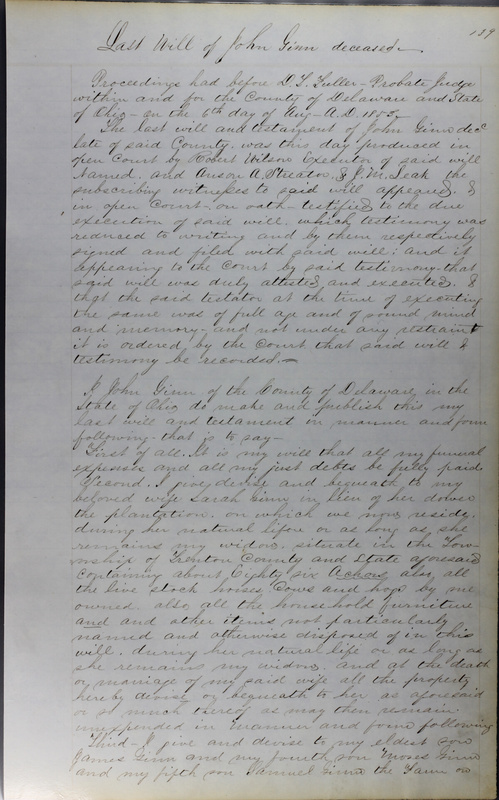 139
Last Will of John Ginn deceased
Proceedings had before D. T. Fuller - Probate Judge
within and for the County of Delaware and State
of Ohio - on the 6th day of Aug - A.D. 1855
The last will and testament of John Ginn decd
late of said County. was this day produced in
open Court by Robert Wilson Executor of said will
Named, and Anson A. Streator, & J. M. Leak the
subscribing witnesses to said will appeared, &
in open Court, on oath testified to the due
execution of said will. which testimony was
reduced to writing and by them respectively
signed and filed with said will; and it
appearing to the Court by said testimony that
said will was duly attested and executed. &
that the said testator at the time of executing
the same was of full age and of sound mind
and memory, and not under any restraint
it is ordered by the Court that said will &
testimony be recorded.
I John Ginn of the County of Delaware in the
State of Ohio do make and publish this my
last will and testament in manner and form
following - that is to say -
First of all. It is my will that all my funeral
expenses and all my just debts be fully paid
Second. I give, devise and bequeath to my
beloved wife Sarah Ginn in lieu of her dower
the plantation. on which we now reside.
during her natural life or as long as she
remains my widow. situate in the Tow-
nship of Trenton County and State aforesaid
Containing about Eighty six Acres also, all
the live stock horses, Cows and hogs by me
owned. also all the household furniture
and and other items not particularly
named and otherwise disposed of in this
will. during her natural life or as long as
she remains my widow. and at the death
or marriage of my said wife all the property
hereby devise or bequeath to her as aforesaid
or so much thereof as may then remain
unexpended in manner and form following
Third - I give and devise to my eldest son
James Ginn and my fourth son Moses Ginn
and my fifth son Samuel Ginn the Farm on